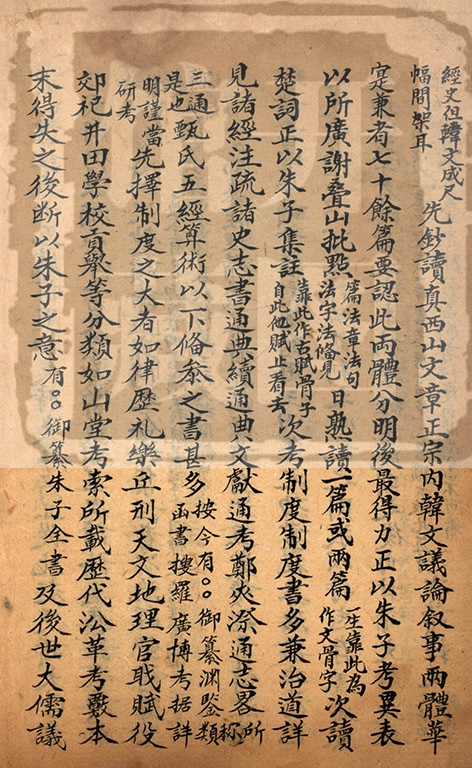 經史但韓文成尺
幅間架耳
先鈔讀真西山文章正宗内韓文議論叙事兩體華
寔兼者七十餘篇要認此兩體分明後最得力正以朱子考異表
以所廣謝叠山批點
篇法章法句
法字法備見
日熟讀一篇或兩篇
一生靠此為
作文骨字
次讀
楚詞正以朱子集註
靠此作古賦骨子
自此他賦止看去
次考制度制度書多兼治道詳
見諸經注疏諸史志書通典續通典文獻通考鄭夾漈通志畧
三通
是也
甄氏五經算術以下俻叅之書甚多
按今有御纂淵鑒類
函書搜羅廣博考据詳
明謹當
研考
先擇制度之大者如律歷礼樂兵刑天文地理官职賦役
郊祀井田學校貢舉等分類如山堂考索所載歷代沿革考覈本
末得失之後断以朱子之意
有御纂朱子全書
及後世大儒議